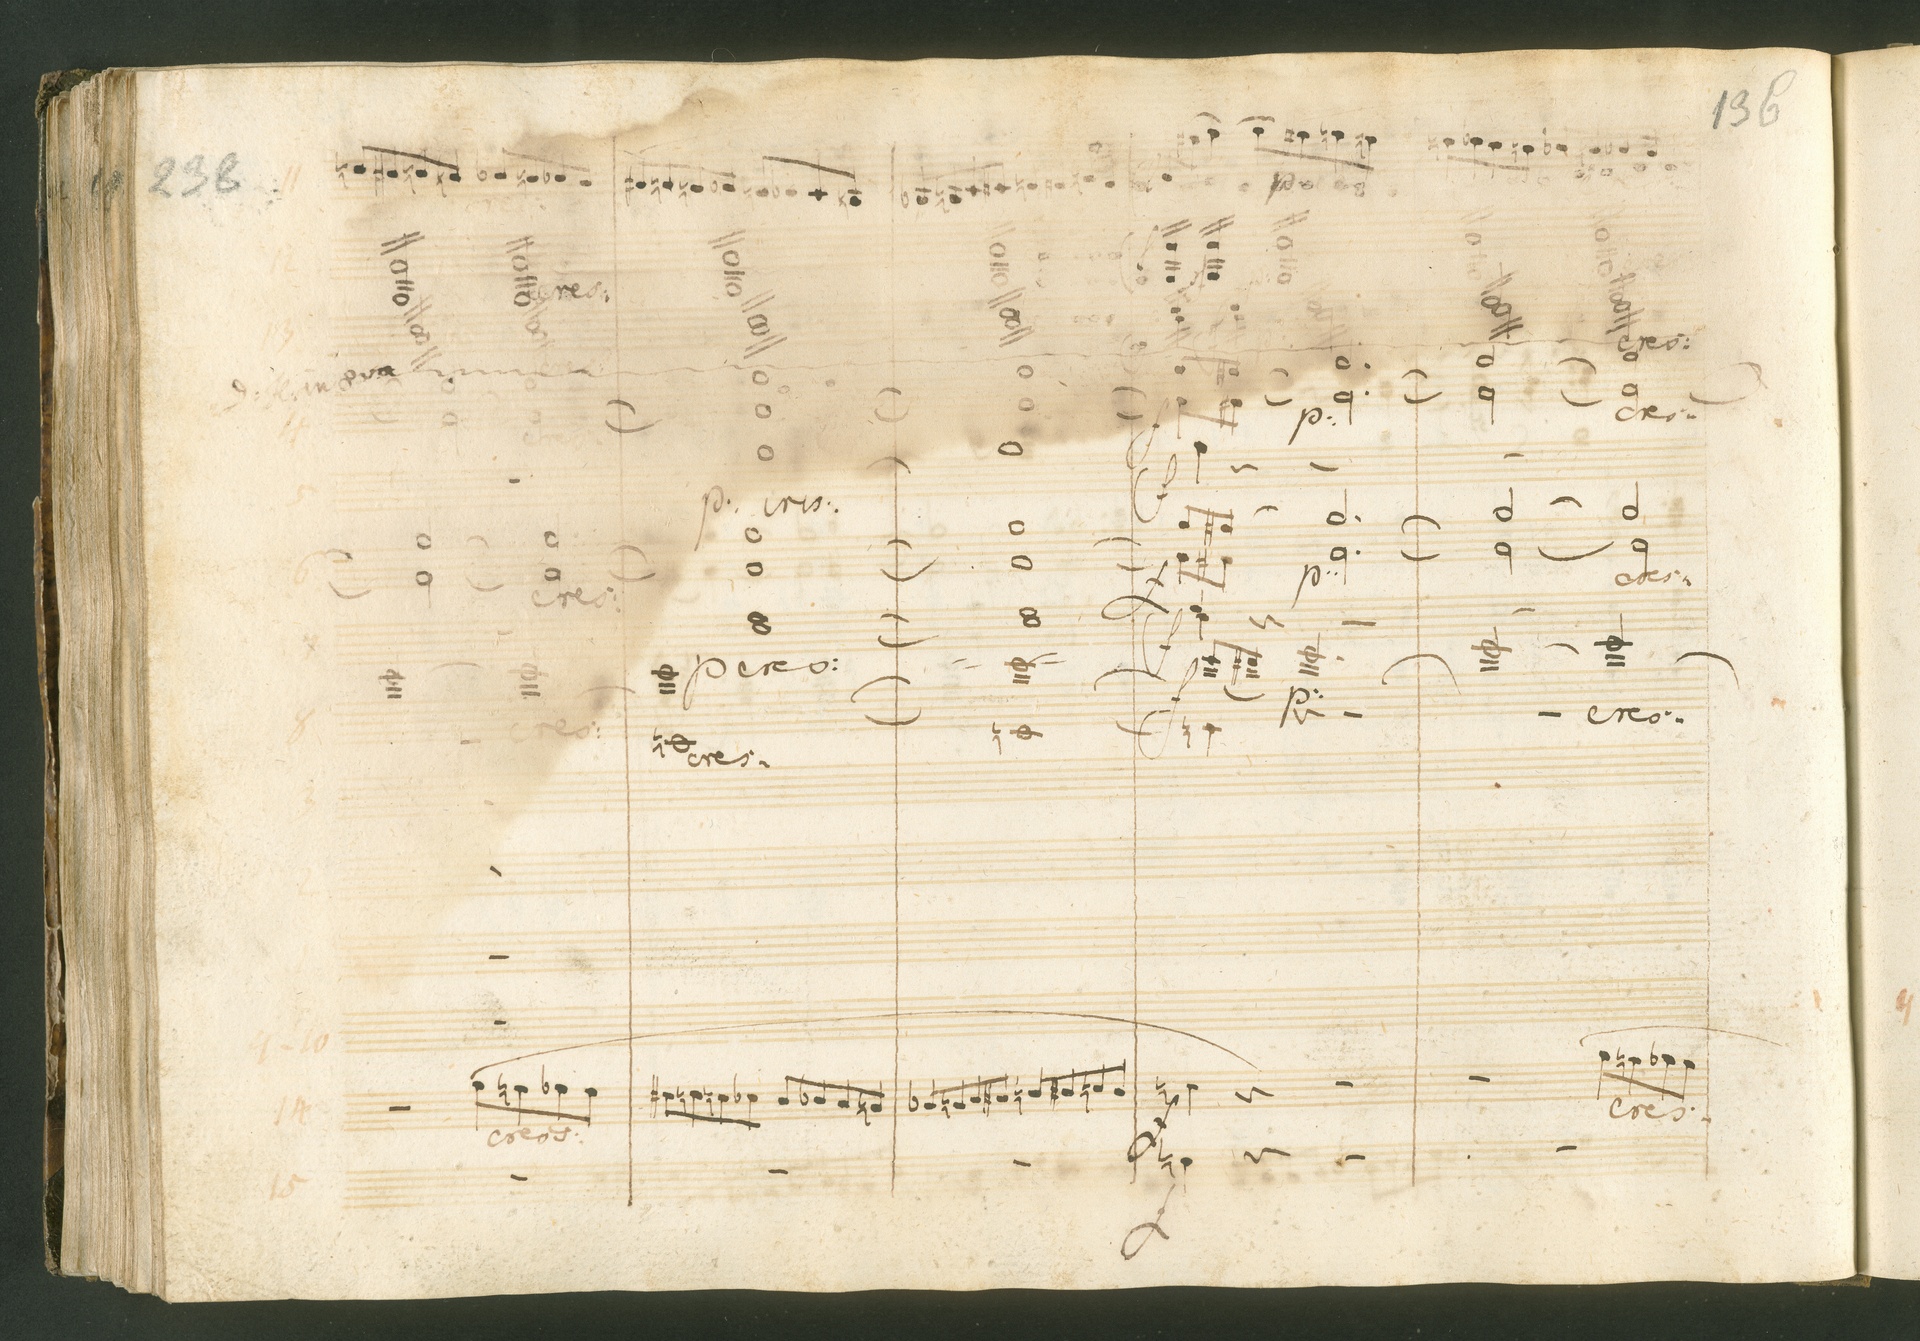 136
238
11
cres:
cres:
in 8va
4
p:
cres:
5
p: cres:
6
cres:
p:
cres:
p cres:
p:
8
cres:
cres:
cres:
3
2
9-10
14
cres:
cres:
15